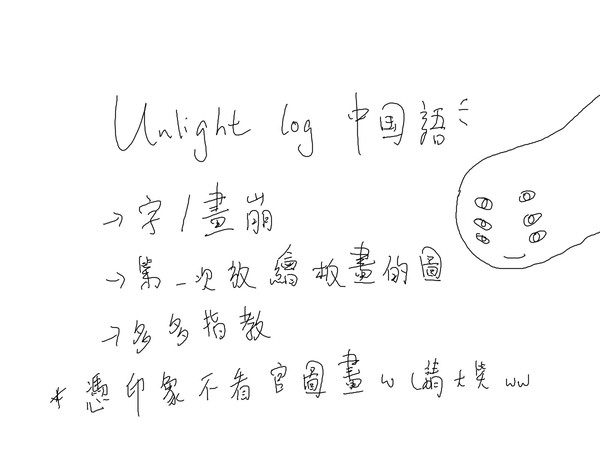 Unlight log 中国語
→字/畫崩
→第一次放繪板畫的圖
→多多指教
*憑印象不看官圖畫w(請大笑ww